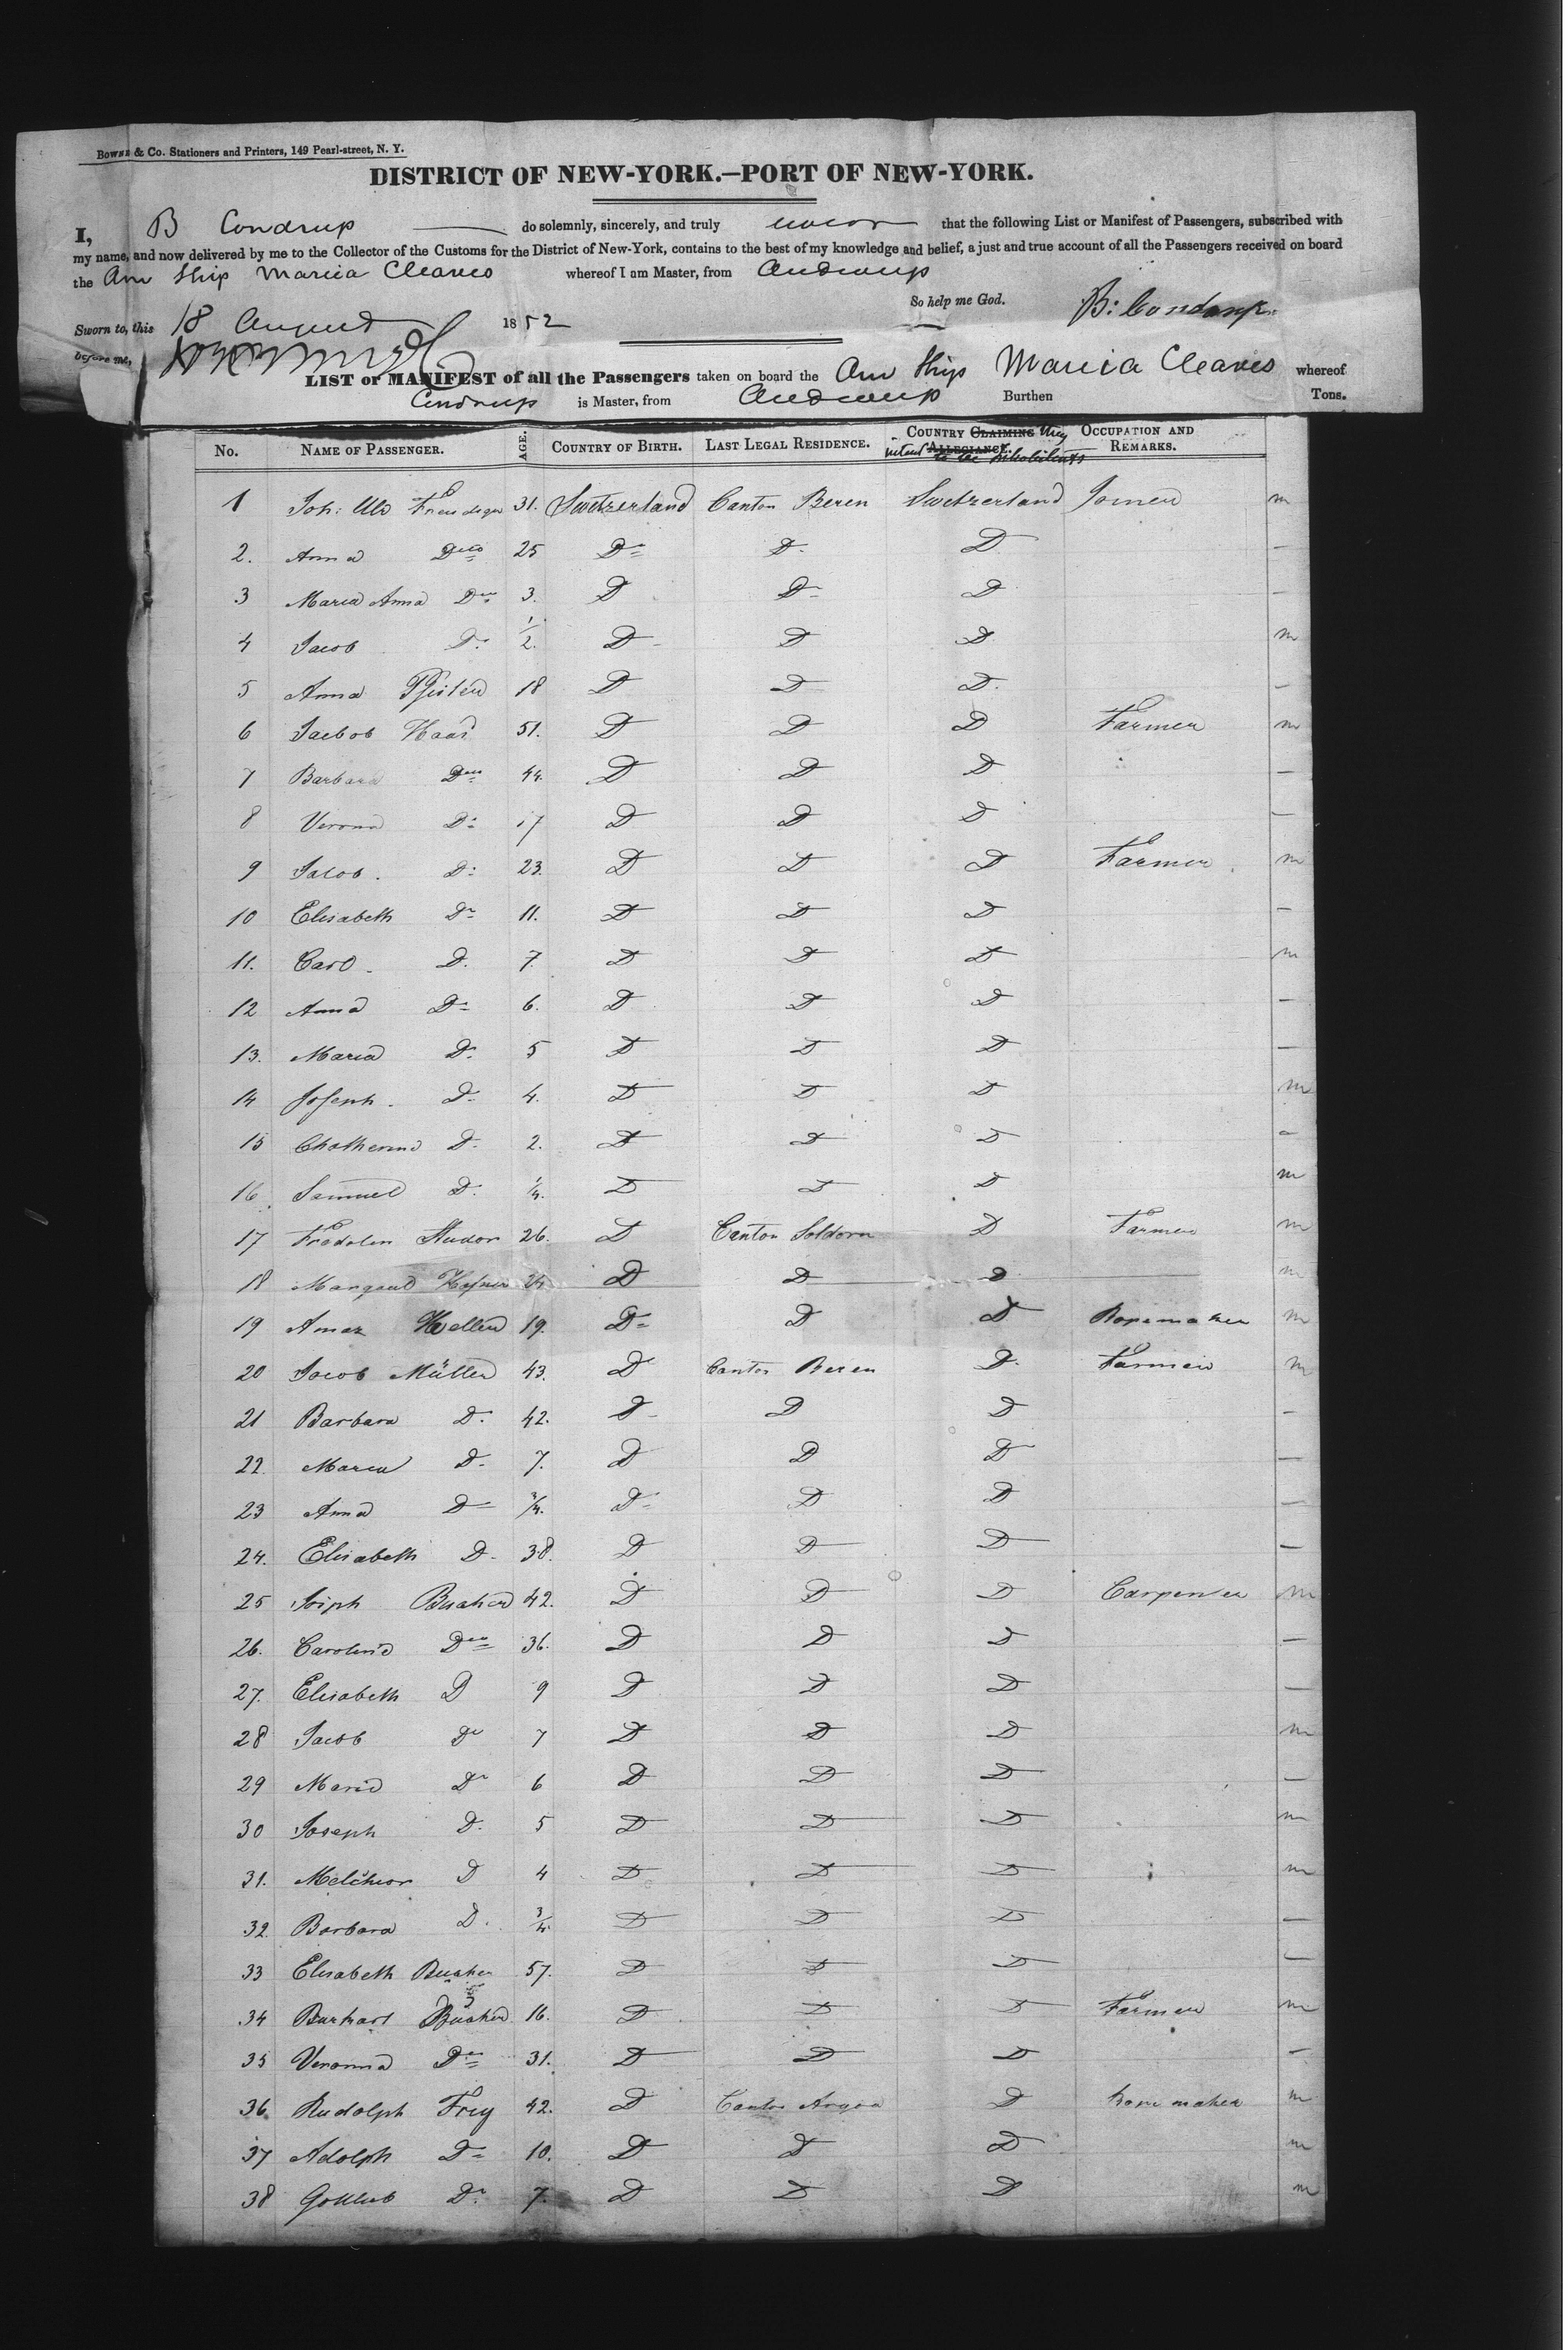 Bowne & Co. Stationers and Printers, 149 Pearl-street, N. Y.
DISTRICT OF NEW-YORK.—PORT OF NEW-YORK.
I, B Condrup do solemnly, sincerely, and truly swear that the following List or Manifest of Passengers, subscribed with
my name, and now delivered by me to the Collector of the Customs for the District of New-York, contains to the best of my knowledge and belief, a just and true account of all the Passengers received on board
the Am Ship Marcia Cleaves whereof I am Master, from Andwerp
So help me God. B: Condrup.
Sworn to, this 18 August 1852
before me,
LIST or MANIFEST of all the Passengers taken on board the Am Ship Marcia Cleaves whereof
Condrup is Master, from Andwerp Burthen Tons.
No. NAME OF PASSENGER. AGE. COUNTRY OF BIRTH. LAST LEGAL RESIDENCE. COUNTRY CLAIMING they OCCUPATION AND
intend ALLEGIANCE. REMARKS.
1 Joh: Ulr 31. Switzerland Canton Beren Switzerland Joiner m
2. Anna Do 25 Do D. D —
3 Maria Anna Do 3. D D D —
4 Jacob Do 1/2. D D D m
5 Anna Pfister 18 D D D. —
6 Jacbob Haas 51. D D D Farmer m
7 Barbara Do 44. D D D —
8 Verona Do 17 D D D —
9 Jacob. Do 23. D D D Farmer. m
10 Elisabeth Do 11. D D D —
11. Carl D. 7. D D D m
12 Anna Do 6. D D D —
13. Maria D. 5 D D D —
14 Joseph. D. 4. D D D m
15 Chatherina D. 2. D D D —
16. Samuel D. 1/4. D D D m
17 Fridolin Studor 26. D Canton Soldorn D Farmer m
18 Hafner 24 D D D m
19 Heller 19. Do D D Ropemaker m
20 Jacob Müller 43. D Canton Beren D. Farmer m
21 Barbara D. 42. D D D —
22. Maria D. 7. D D D —
23 Anna D 3/4. D D D —
24. Elisabeth D. 38. D D D —
25 Joseph 42. D D D Carpenter m
26. Carolina Do 36. D D D —
27. Elisabeth D 9 D D D —
28 Jacob Do 7 D D D m
29 Maria Do 6 D D D —
30 Joseph D. 5 D D D m
31. Melchior D 4 D D D m
32. Barbara D. 3/4. D D D —
33 Elisabeth 57. D D D —
34 Burkart 16. D D D Farmer m
35 Veronna Do 31. D D D —
36 Rudolph Frey 42. D Canton Argoa D m
37 Adolph Do 10. D D D m
38 Gottlieb Do 7. D D D m